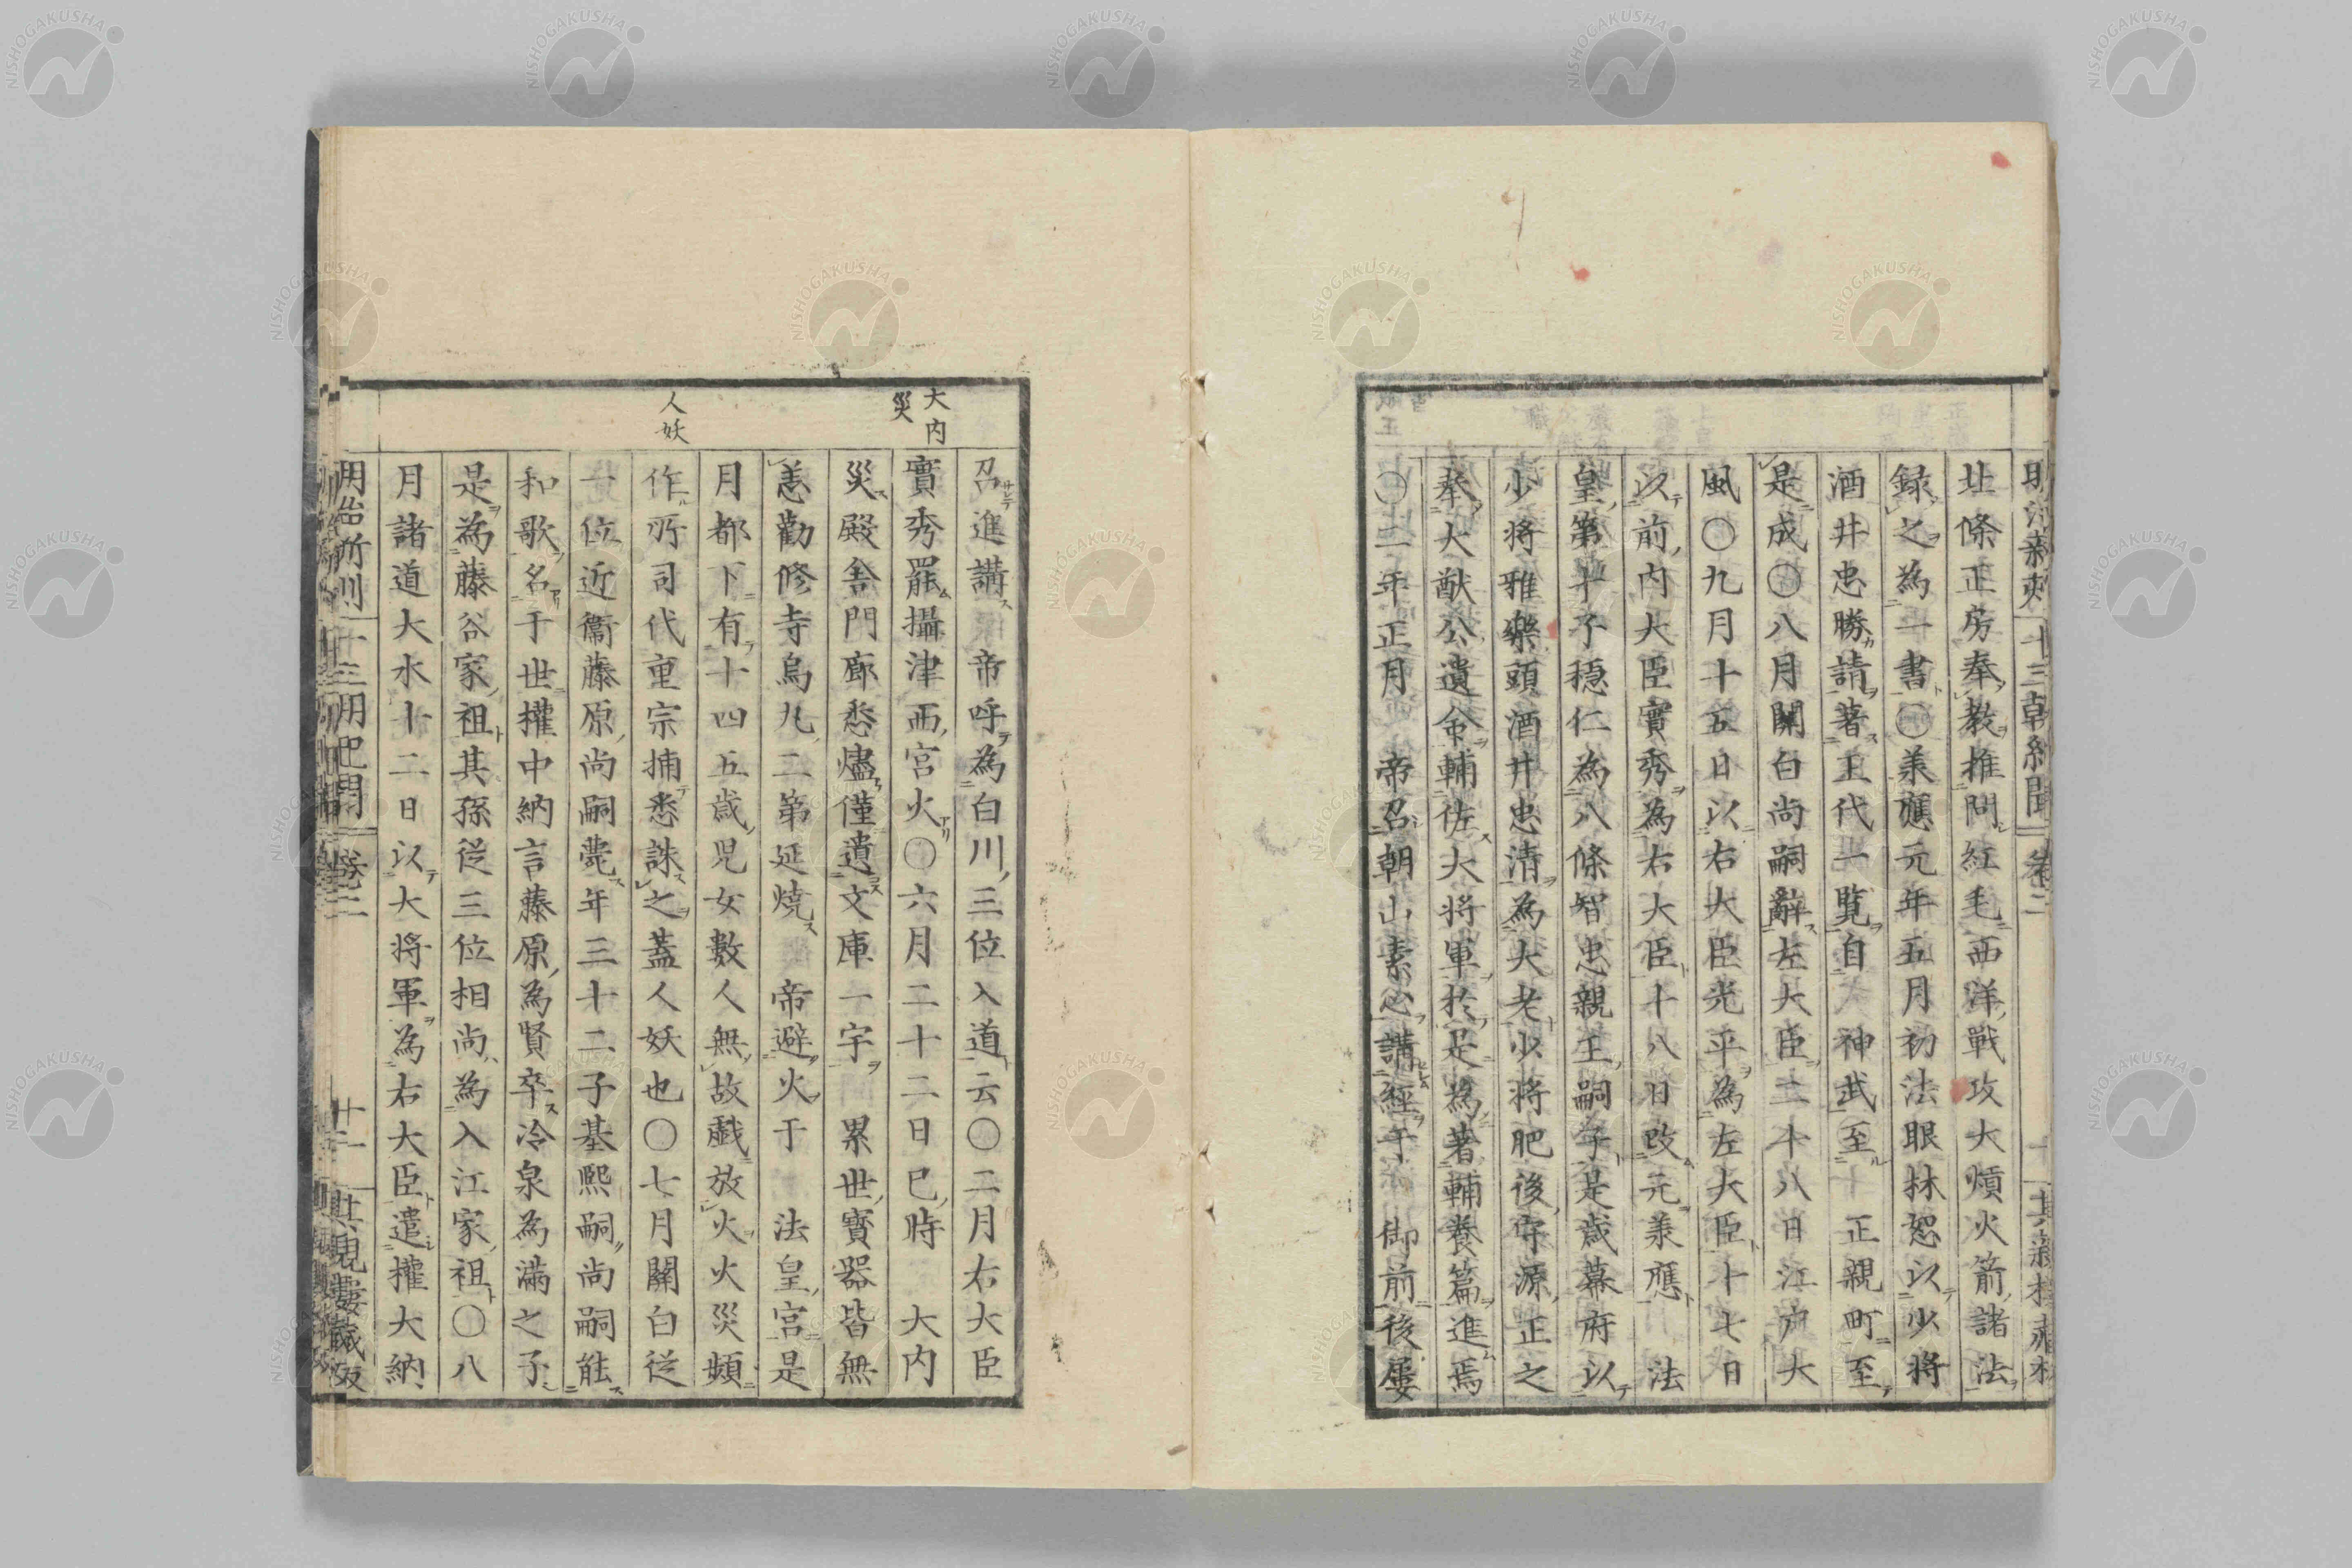 明治新刻 十三朝紀聞 卷二
北條正房奉教推問紅毛西洋戰攻大熕火箭諸法
録之為一書〇承應元年五月初法眼林恕以少将
酒井忠勝請著王代一覧自 神武至 正親町至
是成〇八月關白尚嗣辭左大臣二十八日江戸大
風〇九月十五日以右大臣光平為左大臣十七日
以前内大臣實秀為右大臣十八日改元承應 法
皇第十子穏仁為八條智忠親王嗣子是歳幕府以
少将雅樂頭酒井忠清為大老少将肥後守源正之
奉大猷公遺命輔佐大将軍於是為著輔養篇進焉
〇二年正月 帝召朝山素心講經于 御前後屡
大内
災
人妖
召進講 帝呼為白川三位入道云〇二月右大臣
實秀罷攝津西宮火〇六月二十二日巳時 大内
災殿舎門廊悉燼僅遺文庫一宇 累世寳器皆無
恙勸修寺烏丸二第延燒 帝避火于 法皇宮是
月都下有十四五歳児女數人無故戯放火火災頻
作所司代重宗捕悉誅之蓋人妖也〇七月關白従
一位近衞藤原尚嗣薨年三十二子基熙嗣尚嗣能
和歌名于世權中納言藤原為賢卒冷泉為滿之子
是為藤谷家祖其孫従三位相尚為入江家祖〇八
月諸道大水十二日以大将軍為右大臣遣權大納